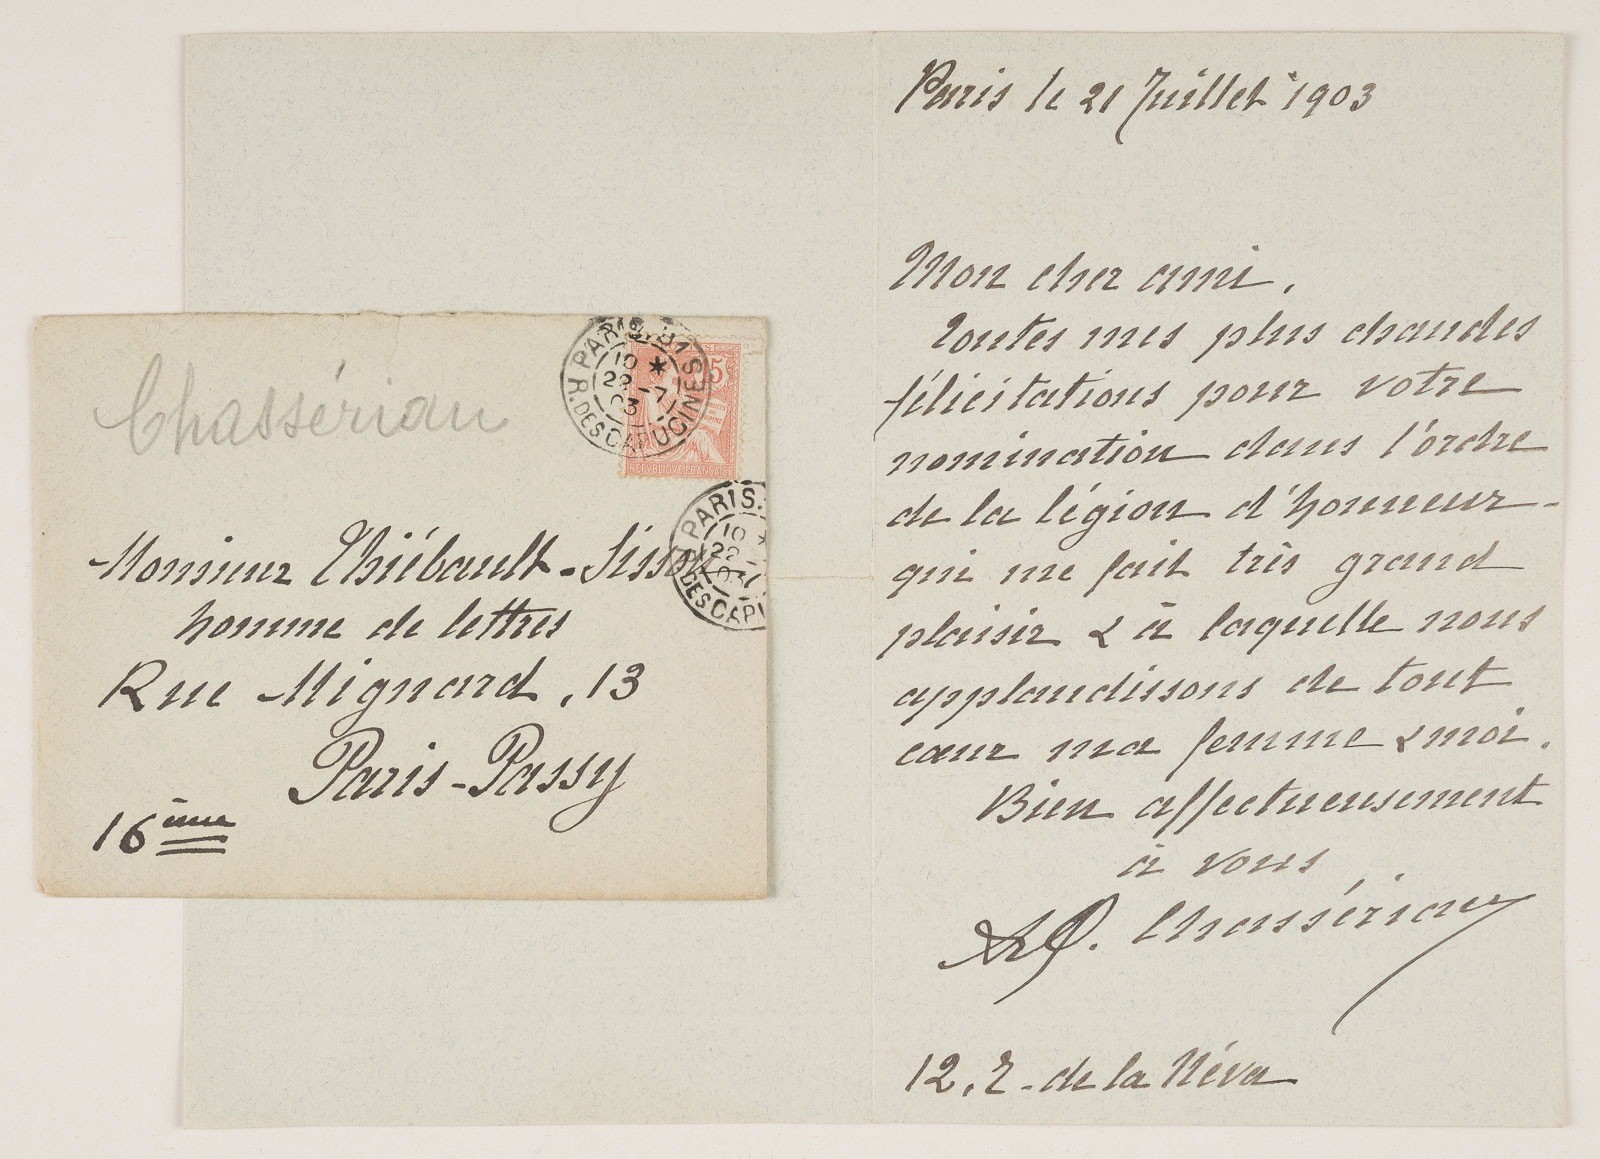 Chassérian
PARIS. 81
10 *
22 -7
03
R. DES CAPUCINES
15
REPVBLIQVE FRANÇAISE
PARIS.
10 *
22
03
DES CAP
Monsieur Thiébault-Sisson
homme de lettres
Rue Mignard, 13
Paris-Passy
16ème
Paris le 21 Juillet 1903
Mon cher ami,
Toutes mes plus chaudes
félicitations pour votre
nomination dans l'ordre
de la légion d'honneur -
qui me fait très grand
plaisir & à laquelle nous
applaudissons de tout
cœur ma femme & moi.
Bien affectueusement
à vous
Chassériau
12, R. de la Néva